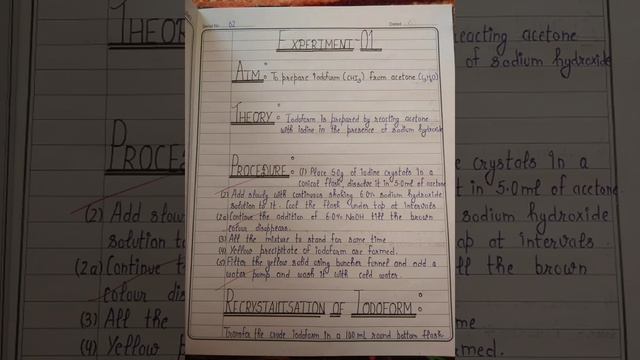 Serial No. 62
Dated
EXPERIMENT-01
AIM: To prepare iodoform (CHI3) from acetone (C3H6O)
THEORY: Iodoform is prepared by reacting acetone
with iodine in the presence of sodium hydroxide
PROCEDURE: (1) Place 5.0g of iodine crystals in a
conical flask, dissolve it in 5.0ml of acetone
(2) Add slowly with continuous shaking 6.0N sodium hydroxide
solution to it. Cool the flask under tap at intervals
(2a) Continue the addition of 6.0N NaOH till the brown
colour disappears.
(3) All the mixture to stand for some time
(4) Yellow precipitate of iodoform are formed.
(5) Filter the yellow solid using buncher funnel and add a
water pump and wash it with cold water.
RECRYSTALLISATION OF IODOFORM:
Transfer the crude iodoform in a 100mL round bottom flask
THEOR
PROCE
(2) Add slow
solution to
(2a) Continue t
colour dis
(3) All the
(4) Yellow p
reacting acetone
of sodium hydroxide
e crystals in a
t in 5.0ml of acetone
sodium hydroxide
ap at intervals
ll the brown
me
rmed.